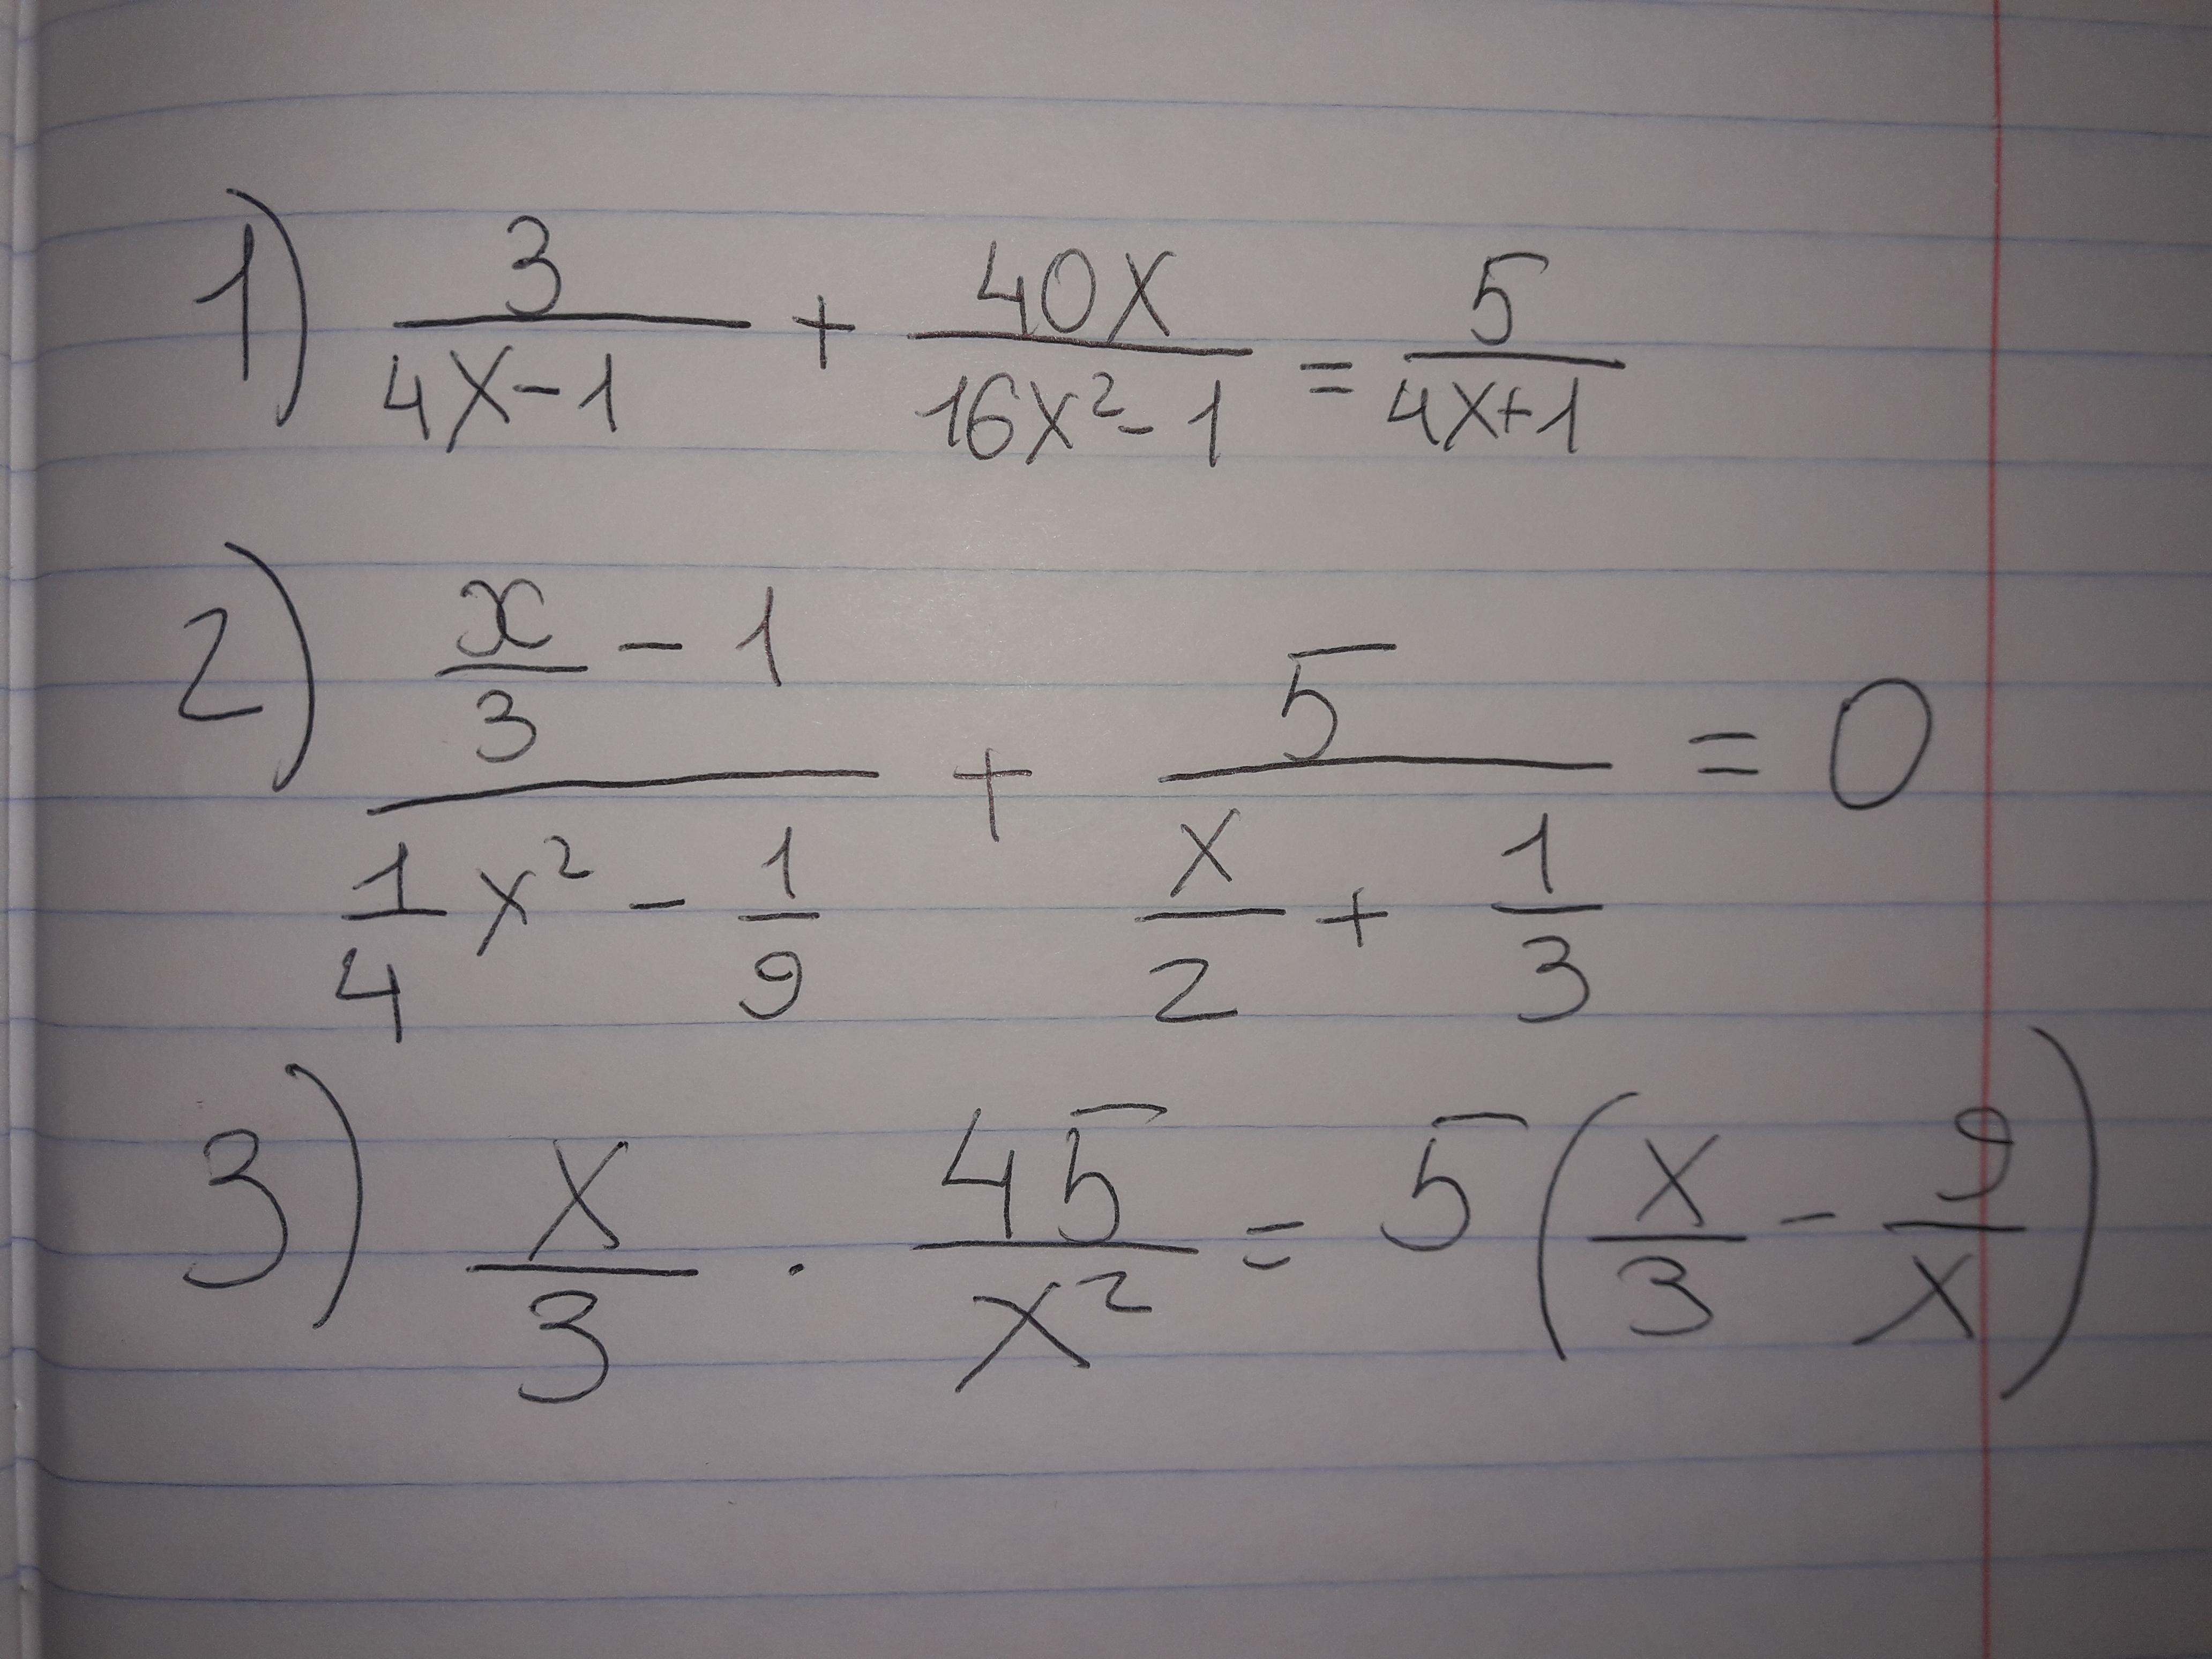 1) \frac{3}{4x-1} + \frac{40x}{16x^2-1} = \frac{5}{4x+1}
2) \frac{\frac{x}{3} - 1}{\frac{1}{4}x^2 - \frac{1}{9}} + \frac{5}{\frac{x}{2} + \frac{1}{3}} = 0
3) \frac{x}{3} \cdot \frac{45}{x^2} = 5\left(\frac{x}{3} - \frac{9}{x}\right)